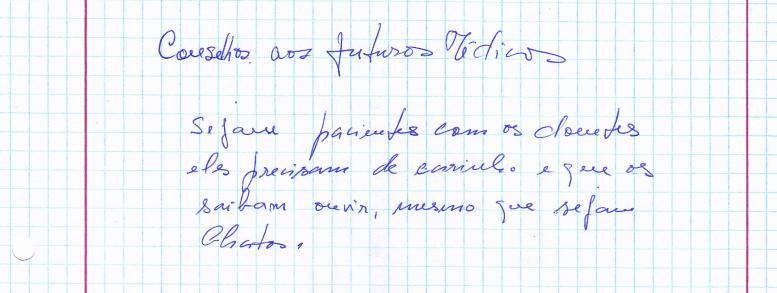 Conselhos aos futuros Médicos
Sejam pacientes com os doentes
eles precisam de carinho e que os
saibam ouvir, mesmo que sejam
Chatos.